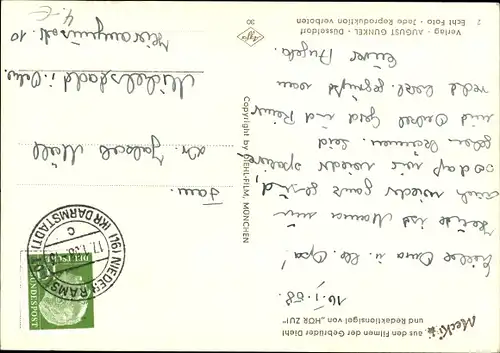 Mecki
aus den Filmen der Gebrüder Diehl
und Redaktionsigel von „HÖR ZU!"
16.1.58.
Liebe Oma u. lb. Opa!
Heute ist Mama nun
auch wieder ganz gesund,
so daß wir wieder spazieren
gehen können. Seid
mit Onkel Gerd und Reiner
recht herzl. gegrüßt von
Eurer Angela.
Verlag · AUGUST GUNKEL · Düsseldorf
2 Echt Foto · Jede Reproduktion verboten
Copyright by DIEHL-FILM, MÜNCHEN
Agfa
30
(16) NIEDER RAMSTADT (KR DARMSTADT)
17.1.58
c
DEUTSCHE
BUNDESPOST
10
Fam.
Dr. Jakob
Michelstadt i. Odw.
10
4.-€